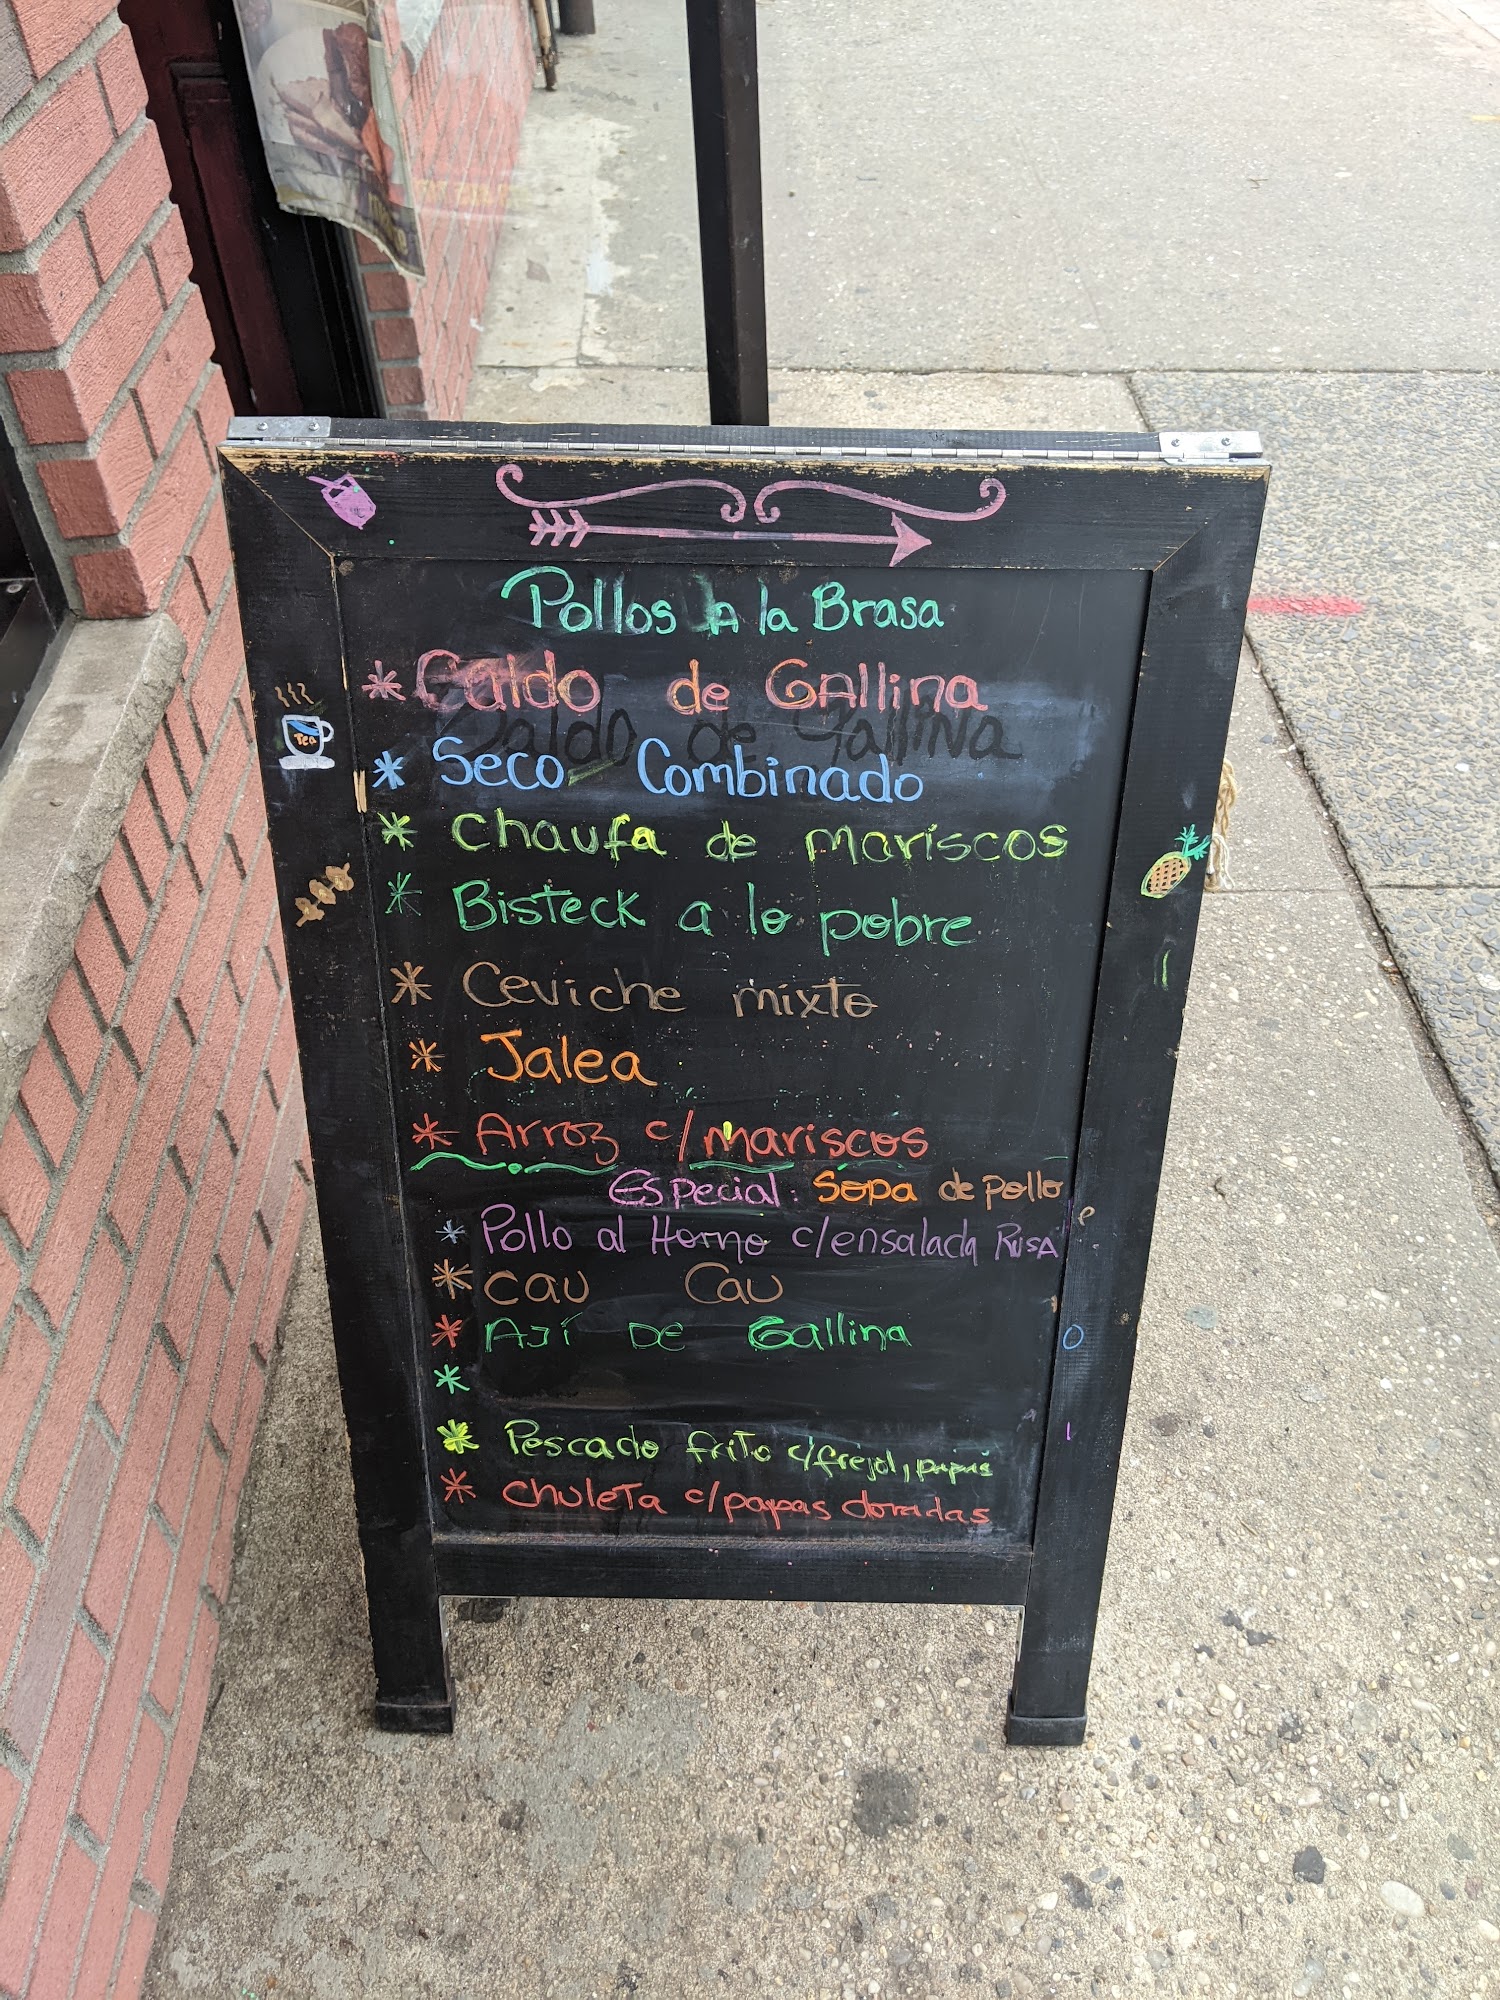 Pollos A la Brasa
* Caldo de GAllina
Caldo de GalliNa
* Seco Combinado
* Chaufa de mariscos
* Bisteck a lo pobre
* Ceviche mixto
* Jalea
* Arroz c/mariscos
Especial: Sopa de pollo
* Pollo al Horno c/ensalada RusA
* Cau Cau
* AJí DE Gallina
*
* Pescado frito c/frejol, papas
* chuleTa c/papas doradas
Tea